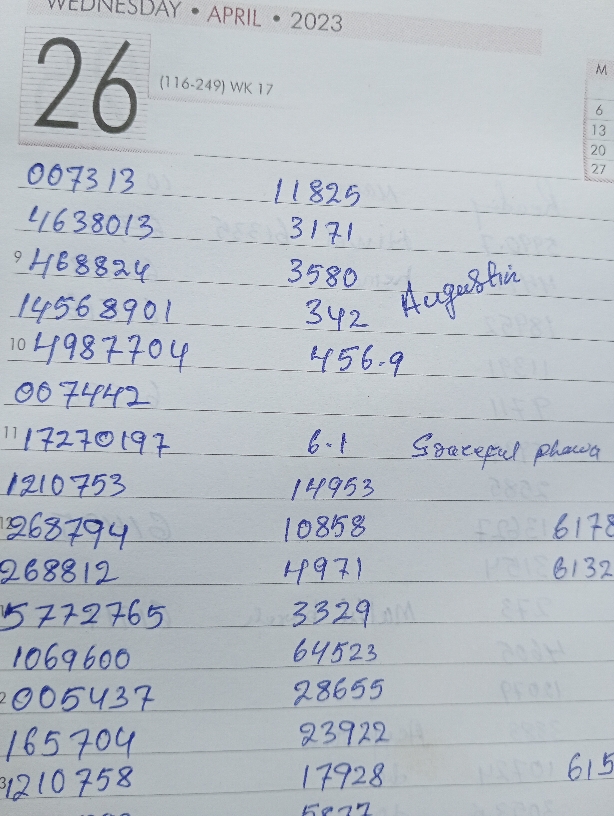 WEDNESDAY • APRIL • 2023
26 (116-249) WK 17
M
6
13
20
27
007313 11825
4638013 3171
9 468824 3580 Augustin
14568901 342
10 4987704 456.9
007442
11 17270197 6.1 Graceful
1210753 14953
12 268794 10858 6178
268812 4971 6132
5772765 3329
1069600 64523
2 005437 28655
165704 23922
3 1210758 17928 615